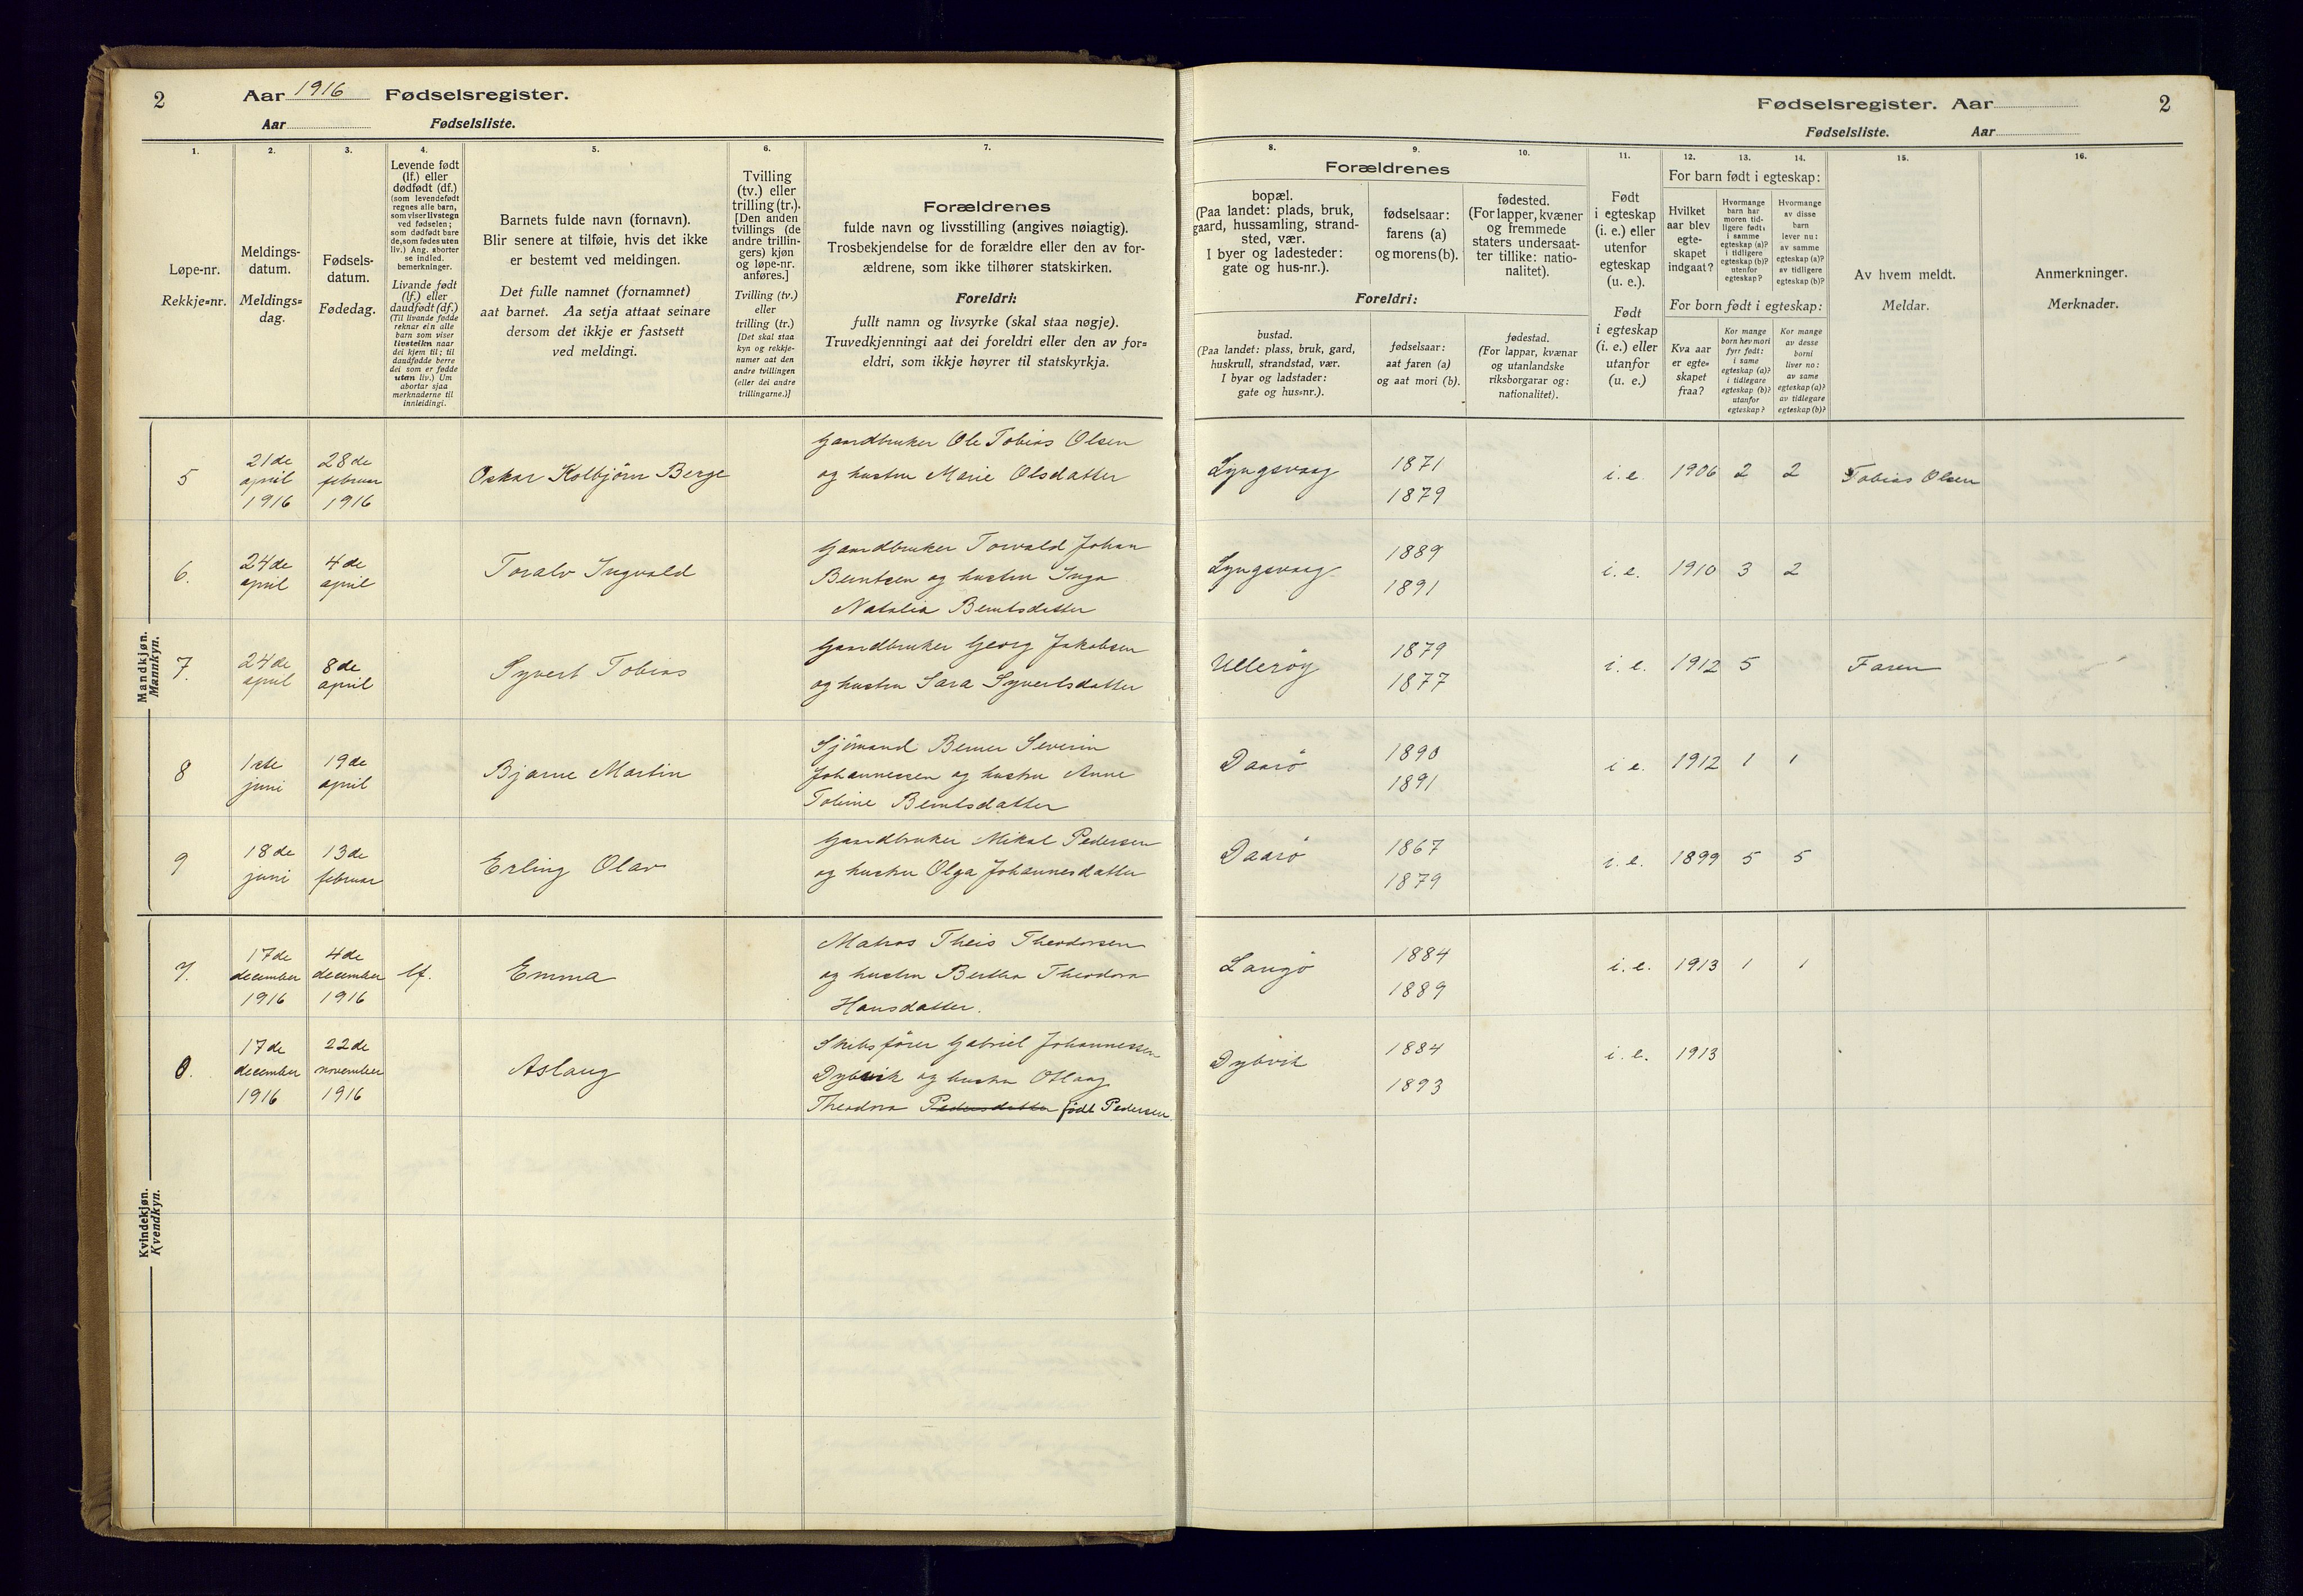 2
Aar 1916 Fødselsregister.
Aar Fødselsliste.
Fødselsregister. Aar
Fødselsliste. Aar
2
1.
Løpe-nr.
Rekkje=nr.
2.
Meldings-
datum.
Meldings=
dag.
3.
Fødsels-
datum.
Fødedag.
4.
Levende født
(lf.) eller
dødfødt (df.)
(som levendefødt
regnes alle barn,
som viser livstegn
ved fødselen;
som dødfødt bare
de, som fødes uten
liv.) Ang. aborter
se indled.
bemerkninger.
Livande født
(lf.) eller
daudfødt (df.)
(Til livande fødde
reknar ein alle
barn som viser
livsteikn naar
dei kjem til; til
daudfødde berre
dei som er fødde
utan liv.) Um
abortar sjaa
merknaderne til
innleidingi.
5.
Barnets fulde navn (fornavn).
Blir senere at tilføie, hvis det ikke
er bestemt ved meldingen.
Det fulle namnet (fornamnet)
aat barnet. Aa setja attaat seinare
dersom det ikkje er fastsett
ved meldingi.
6.
Tvilling
(tv.) eller
trilling (tr.).
[Den anden
tvillings (de
andre trillin-
gers) kjøn
og løpe-nr.
anføres.]
Tvilling (tv.)
eller
trilling (tr.)
[Det skal staa
kyn og rekkje-
numer aat den
andre tvillingen
(eller dei andre
trillingarne.)]
7.
Forældrenes
fulde navn og livsstilling (angives nøiagtig).
Trosbekjendelse for de forældre eller den av for-
ældrene, som ikke tilhører statskirken.
Foreldri:
fullt namn og livsyrke (skal staa nøgje).
Truvedkjenningi aat dei foreldri eller den av for=
eldri, som ikkje høyrer til statskyrkja.
8.
Forældrenes
bopæl.
(Paa landet: plads, bruk,
gaard, hussamling, strand-
sted, vær.
I byer og ladesteder:
gate og hus-nr.).
Foreldri:
bustad.
(Paa landet: plass, bruk, gard,
huskrull, strandstad, vær.
I byar og ladstader:
gate og hus=nr.).
9.
fødselsaar:
farens (a)
og morens (b).
fødselsaar:
aat faren (a)
og aat mori (b).
10.
fødested.
(For lapper, kvæner
og fremmede
staters undersaat-
ter tillike: natio-
nalitet).
fødestad.
(For lappar, kvænar
og utanlandske
riksborgarar og:
nationalitet).
11.
Født
i egteskap
(i. e.) eller
utenfor
egteskap
(u. e.).
Født
i egteskap
(i. e.) eller
utanfor
(u. e.)
12.
For barn født i egteskap:
Hvilket
aar blev
egte-
skapet
indgaat?
For born født i egteskap:
Kva aar
er egte=
skapet
fraa?
13.
Hvormange
barn har
moren tid-
ligere født:
i samme
egteskap (a)?
i tidligere
egteskap (b)?
utenfor
egteskap?
Kor mange
born hev mori
fyrr født:
i same
egteskap (a)?
i tidlegare
egteskap (b)?
utanfor
egteskap?
14.
Hvormange
av disse
barn
lever nu:
av samme
egteskap (a)?
av tidligere
egteskap (b)?
Kor mange
av desse
borni
liver no:
av same
egteskap (a)?
av tidlegare
egteskap (b)?
15.
Av hvem meldt.
Meldar.
16.
Anmerkninger.
Merknader.
Mandkjøn.
Mannkyn.
5 21de april 1916 28de februar 1916 Oskar Kolbjörn Berge
Gaardbruker Ole Tobias Olsen
og hustru Marie Olsdatter
Lyngsvaag 1871 i. e. 1906 2 2 Tobias Olsen
1879
6. 24de april 4de april Toralv Ingvald
Gaardbruker Torvald Johan
Berntsen og hustru Inga
Natalia Berntsdatter
Lyngsvaag 1889 i. e. 1910 3 2
1891
7. 24de april 8de april Syvert Tobias
Gaardbruker Georg Jakobsen
og hustru Sara Syvertsdatter
Ullerøy 1879 i. e. 1912 5 Faren
1877
8 1ste juni 19de april Bjarne Martin
Sjömand Berner Severin
Johannessen og hustru Anne
Tobine Berntsdatter
Daarö 1890 i e. 1912 1 1
1891
9 18de juni 13de februar Erling Olav
Gaardbruker Mikal Pedersen
og hustru Olga Johannesdatter
Daarö 1867 i. e. 1899 5 5
1879
Kvindekjøn.
Kvendkyn.
7. 17de december 1916 4de december 1916 lf. Emma
Matros Theis Theodorsen
og hustru Bertha Theodora
Hansdatter.
Langö 1884 i. e. 1913 1 1
1889
17de december 1916 22de november 1916 Aslaug
Skibsfører Gabriel Johannessen
Dybvik og hustru Otlaug
Theodora Pedersdatter født Pedersen.
Dybvik 1884 i. e. 1913
1893